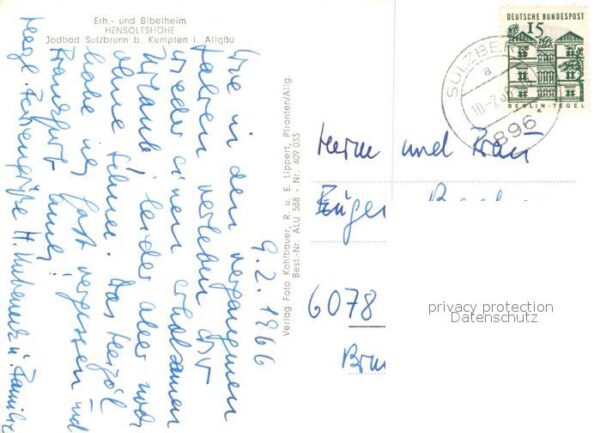 Erh.- und Bibelheim
HENSOLTSHÖHE
Jodbad Sulzbrunn b. Kempten i. Allgäu
9.2.1966
Wie in den vergangenen
Jahren verleben wir
wieder einen erholsamen
Urlaub, leider aber noch
ohne Schnee. Das Herzöl
habe ich fast vergessen und
Frankfurt auch!
Herzl. Feriengrüße H. u. Familie
Verlag Foto Kohlbauer, R. u. E. Lippert, Pfronten/Allg.
Best.-Nr. ALU 588 - Nr. 409 035
DEUTSCHE BUNDESPOST
15
BERLIN-TEGEL
SULZBE
a
10.-2.
896
Herrn und Frau
6078
privacy protection
Datenschutz